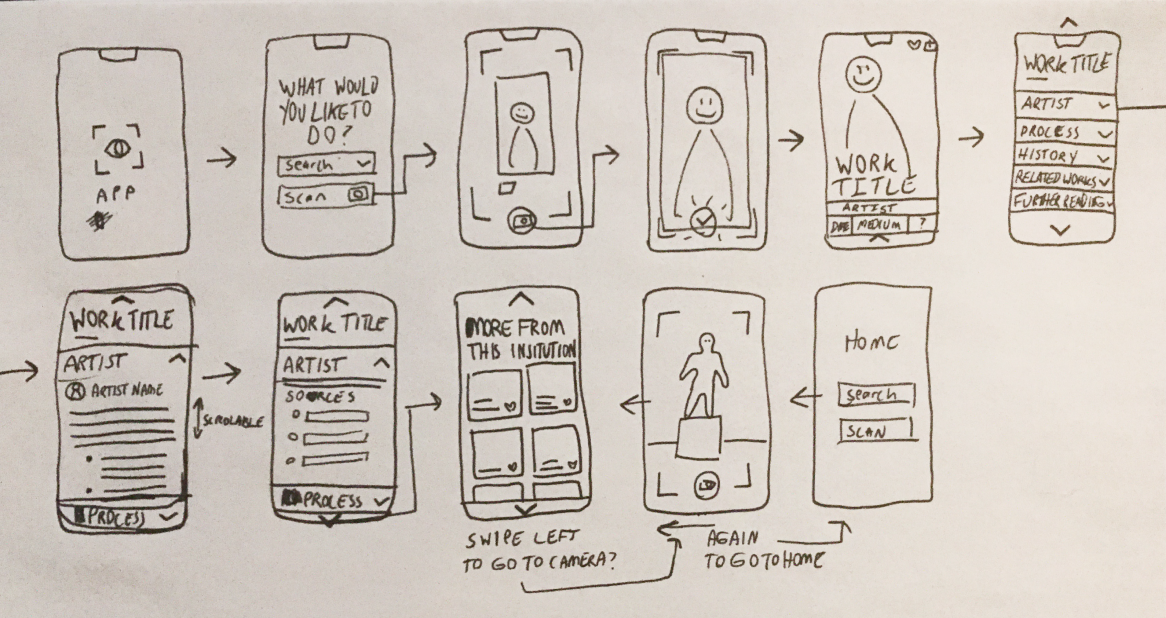 APP
WHAT WOULD
YOU LIKE TO
DO?
Search
SCAN
WORK
TITLE
ARTIST
DATE MEDIUM ?
WORK TITLE
ARTIST
PROCESS
HISTORY
RELATED WORKS
FURTHER READING
WORK TITLE
ARTIST
ARTIST NAME
SCROLABLE
PROCESS
WORK TITLE
ARTIST
SOURCES
PROCESS
MORE FROM
THIS INSITUTION
SWIPE LEFT
TO GO TO CAMERA?
AGAIN
TO GO TO HOME
HOME
Search
SCAN